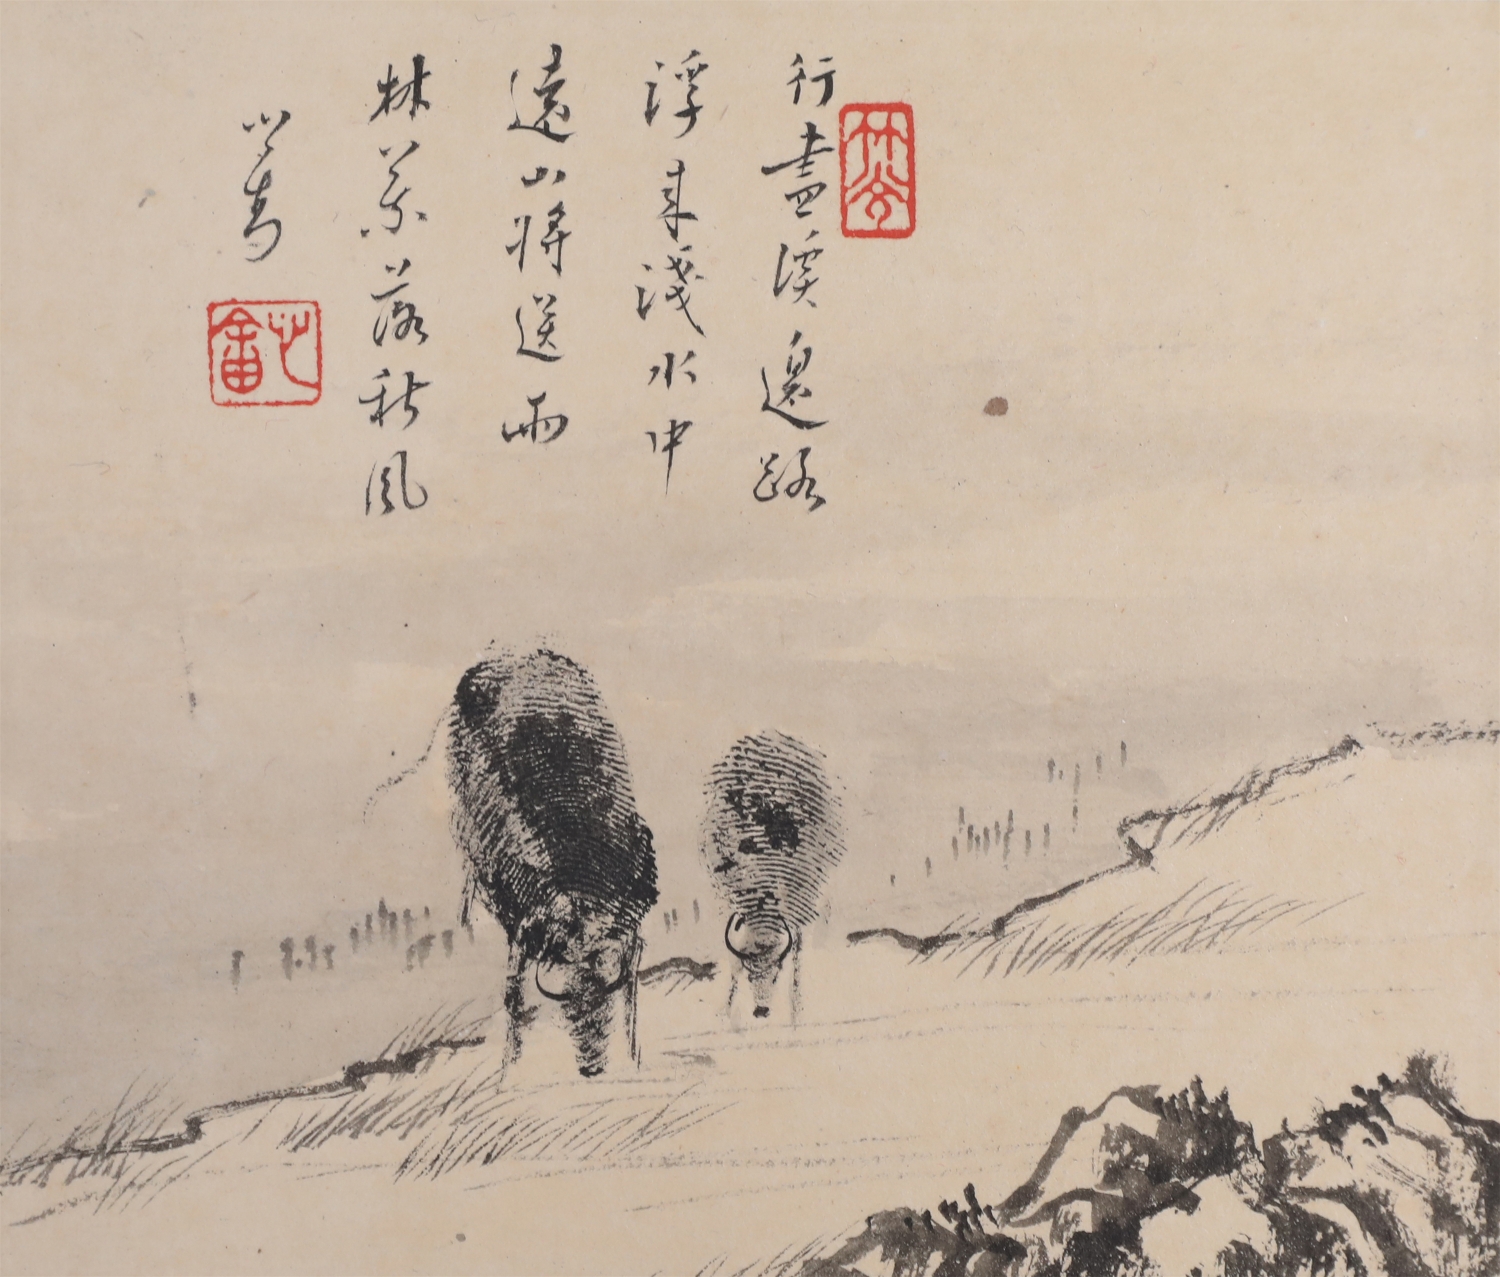 行盡溪邊路
浮來淺水中
遠山將送雨
林葉落秋風
心畬